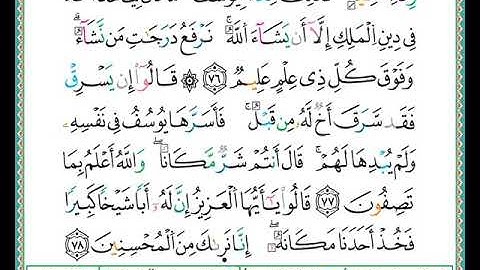 فِي دِينِ ٱلْمَلِكِ إِلَّآ أَن يَشَآءَ ٱللَّهُ ۚ نَرْفَعُ دَرَجَٰتٍ مِّن نَّشَآءُ ۗ
وَفَوْقَ كُلِّ ذِى عِلْمٍ عَلِيمٌ ﴿٧٦﴾ ۞ قَالُوٓا۟ إِن يَسْرِقْ
فَقَدْ سَرَقَ أَخٌ لَّهُۥ مِن قَبْلُ ۚ فَأَسَرَّهَا يُوسُفُ فِى نَفْسِهِۦ
وَلَمْ يُبْدِهَا لَهُمْ ۚ قَالَ أَنتُمْ شَرٌّ مَّكَانًا ۖ وَٱللَّهُ أَعْلَمُ بِمَا
تَصِفُونَ ﴿٧٧﴾ قَالُوا۟ يَٰٓأَيُّهَا ٱلْعَزِيزُ إِنَّ لَهُۥٓ أَبًا شَيْخًا كَبِيرًا
فَخُذْ أَحَدَنَا مَكَانَهُۥٓ ۖ إِنَّا نَرَىٰكَ مِنَ ٱلْمُحْسِنِينَ ﴿٧٨﴾